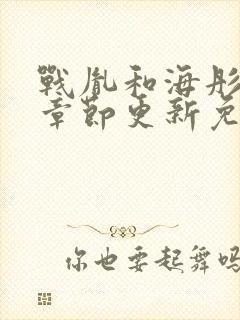 戰胤和海彤
章節更新免
你也要起舞吗